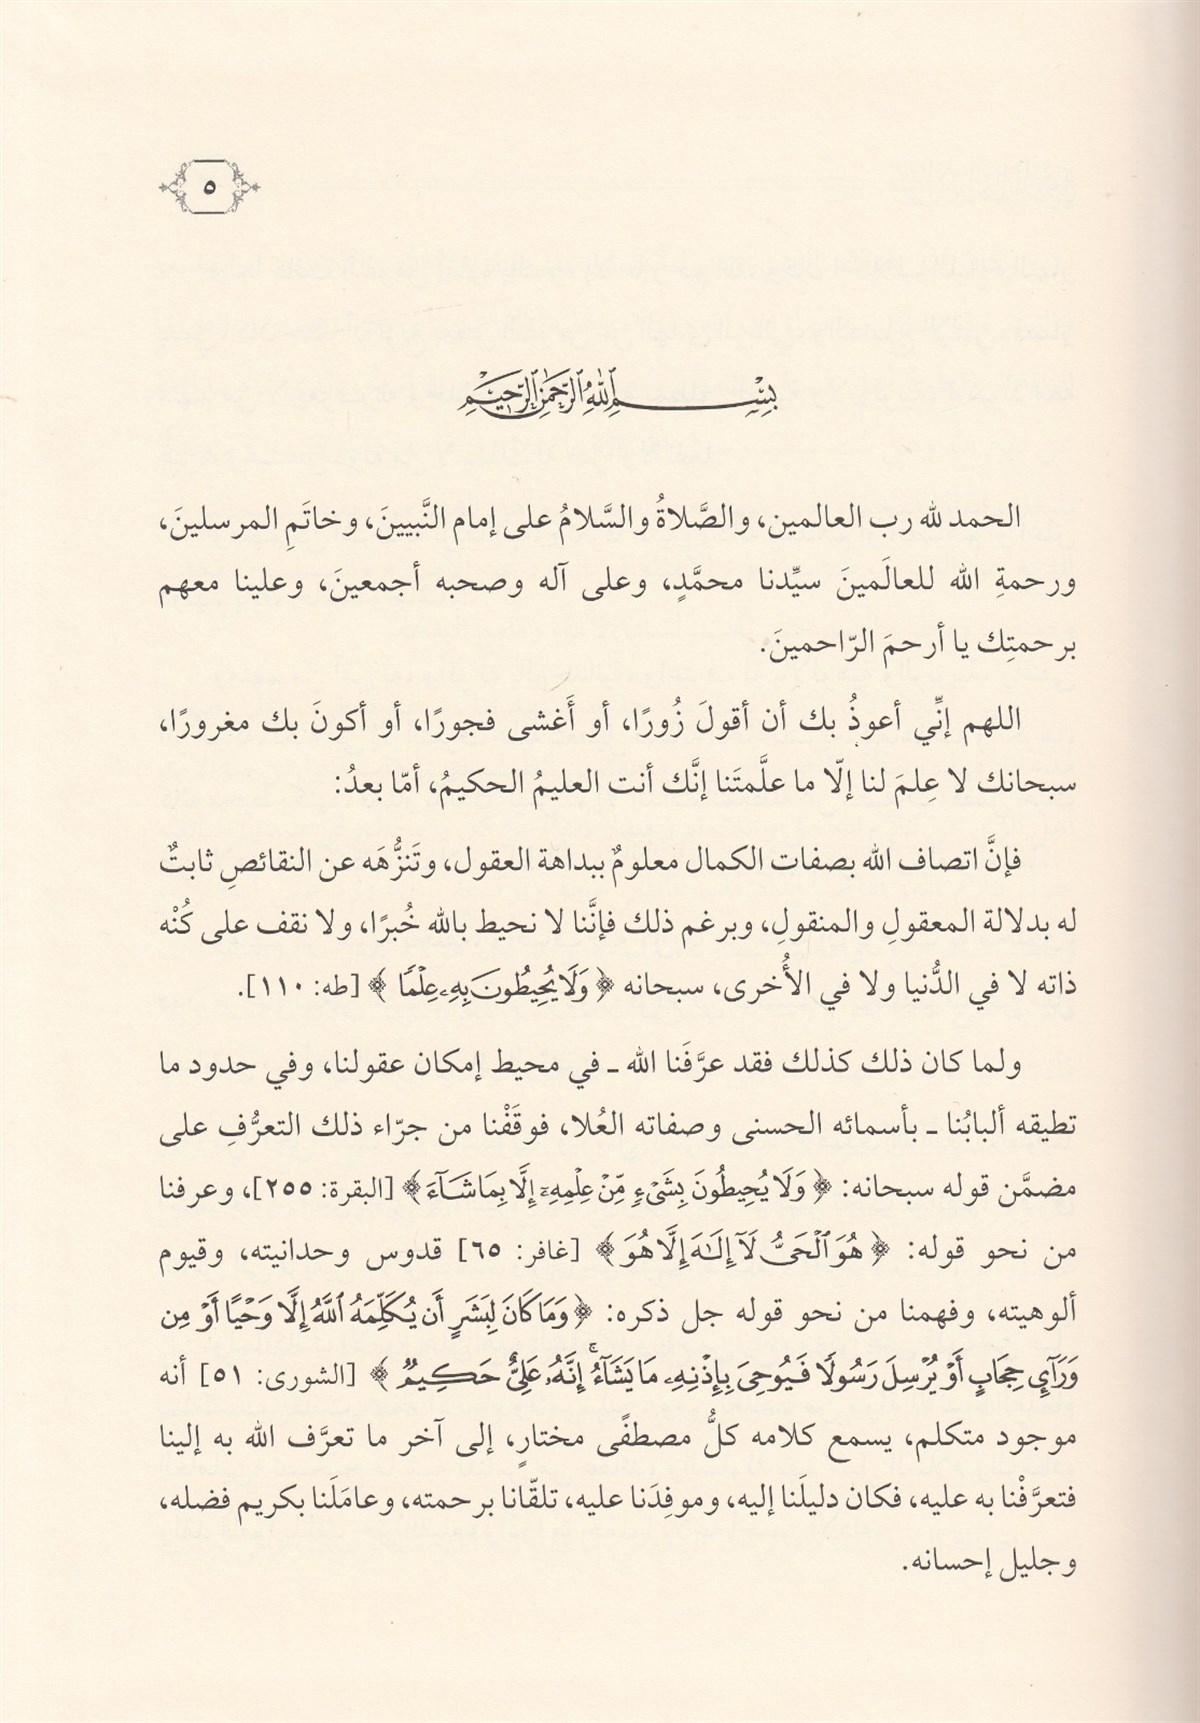 ٥
بِسْمِ ٱللَّهِ ٱلرَّحْمَٰنِ ٱلرَّحِيمِ
الحمد لله رب العالمين، والصَّلاةُ والسَّلامُ على إمام النَّبيينَ، وخاتَمِ المرسلينَ،
ورحمةِ الله للعالَمينَ سيِّدنا محمَّدٍ، وعلى آله وصحبه أجمعينَ، وعلينا معهم
برحمتِك يا أرحمَ الرّاحمينَ.
اللهم إنِّي أعوذُ بك أن أقولَ زُورًا، أو أَغشى فجورًا، أو أكونَ بك مغرورًا،
سبحانك لا عِلمَ لنا إلّا ما علَّمتَنا إنَّك أنت العليمُ الحكيمُ، أمّا بعدُ:
فإنَّ اتصاف الله بصفات الكمال معلومٌ ببداهة العقول، وتَنزُّهَه عن النقائصِ ثابتٌ
له بدلالة المعقولِ والمنقولِ، وبرغم ذلك فإنَّنا لا نحيط بالله خُبرًا، ولا نقف على كُنْه
ذاته لا في الدُّنيا ولا في الأُخرى، سبحانه ﴿ وَلَا يُحِيطُونَ بِهِۦ عِلْمًا ﴾ [طه: ١١٠].
ولما كان ذلك كذلك فقد عرَّفَنا الله ـ في محيط إمكان عقولنا، وفي حدود ما
تطيقه ألبابُنا ـ بأسمائه الحسنى وصفاته العُلا، فوقَفْنا من جرّاء ذلك التعرُّفِ على
مضمَّن قوله سبحانه: ﴿ وَلَا يُحِيطُونَ بِشَىْءٍ مِّنْ عِلْمِهِۦٓ إِلَّا بِمَا شَآءَ ﴾ [البقرة: ٢٥٥]، وعرفنا
من نحو قوله: ﴿ هُوَ ٱلْحَىُّ لَآ إِلَٰهَ إِلَّا هُوَ ﴾ [غافر: ٦٥] قدوس وحدانيته، وقيوم
ألوهيته، وفهمنا من نحو قوله جل ذكره: ﴿ وَمَا كَانَ لِبَشَرٍ أَن يُكَلِّمَهُ ٱللَّهُ إِلَّا وَحْيًا أَوْ مِن
وَرَآئِ حِجَابٍ أَوْ يُرْسِلَ رَسُولًا فَيُوحِىَ بِإِذْنِهِۦ مَا يَشَآءُ ۚ إِنَّهُۥ عَلِىٌّ حَكِيمٌ ﴾ [الشورى: ٥١] أنه
موجود متكلم، يسمع كلامه كلُّ مصطفًى مختارٍ، إلى آخر ما تعرَّف الله به إلينا
فتعرَّفْنا به عليه، فكان دليلَنا إليه، وموفِدَنا عليه، تلقّانا برحمته، وعامَلَنا بكريم فضله،
وجليل إحسانه.